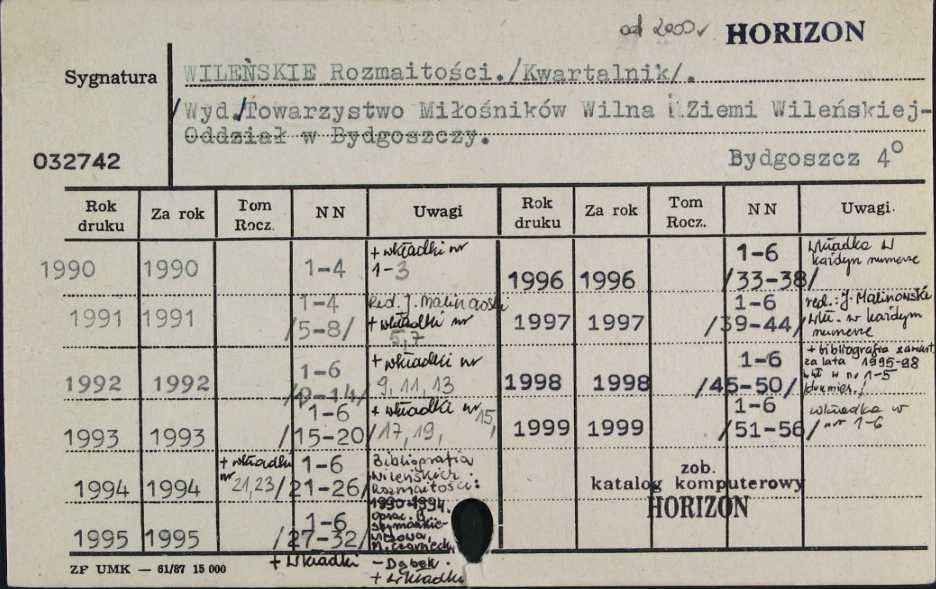 od 2000 r HORIZON
Sygnatura
WILEŃSKIE Rozmaitości./Kwartalnik/.
/Wyd./Towarzystwo Miłośników Wilna i Ziemi Wileńskiej-
Oddział w Bydgoszczy.
032742
Bydgoszcz 4°
Rok druku Za rok Tom Rocz. NN Uwagi Rok druku Za rok Tom Rocz. NN Uwagi.
1990 1990 1-4 + wkładki nr 1-3
1991 1991 1-4 /5-8/ Red. J. Malinowski + wkładki nr 5,7
1992 1992 1-6 /9-14/ + wkładki nr 9, 11, 13
1993 1993 1-6 /15-20/ + wkładki nr 15, 17, 19,
1994 1994 + wkładki nr 21,23 1-6 /21-26/ Bibliografia Wileńskich Rozmaitości: 1990-1994. oprac. B.
1995 1995 1-6 /27-32/ + wkładki
- Dąbek.
+ wkładki
1996 1996 1-6 /33-38/ wkładka w każdym numerze
1997 1997 1-6 /39-44/ red.: J. Malinowski wkł. w każdym numerze
1998 1998 1-6 /45-50/ + bibliografia zawart. za lata 1995-98 wkł w nr 1-5
1999 1999 1-6 /51-56/ wkładka w nr 1-6
zob.
katalog komputerowy
HORIZON
ZP UMK — 61/87 15 000